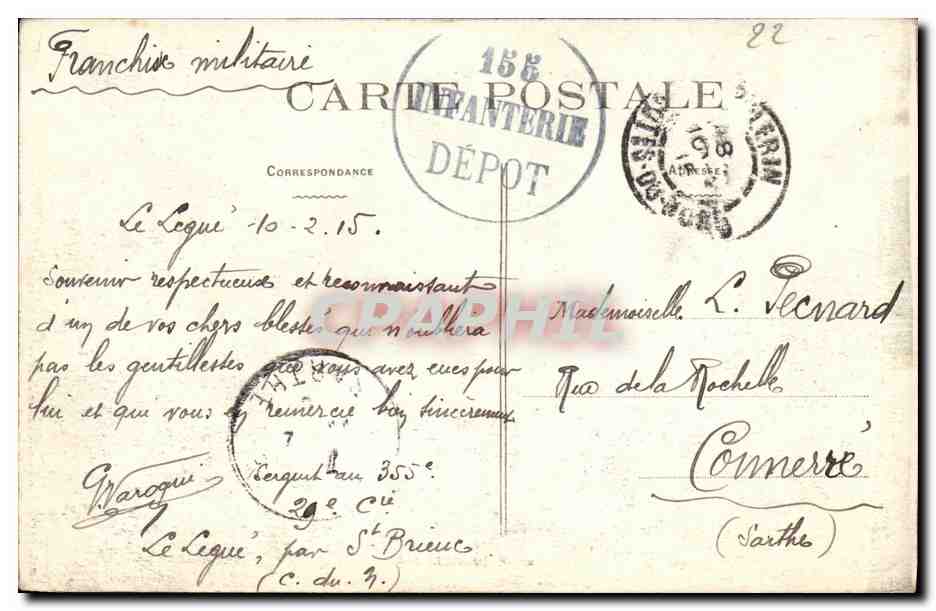 22
Franchise militaire
CARTE POSTALE
155
INFANTERIE
DÉPOT
CORRESPONDANCE
ADRESSE
Le Legué 10-2.15.
Souvenir respectueux et reconnaissant
d'un de vos chers blessés qui n'oubliera
pas les gentillesses que vous avez eues pour
lui et qui vous en remercie bien sincèrement
Sergent au 355e
29e Cie
Le Legué, par St Brieuc
(C. du N.)
Mademoiselle L. Pecnard
Rue de la Rochelle
Connerré
(Sarthe)
CARTHE
CRAPHIL